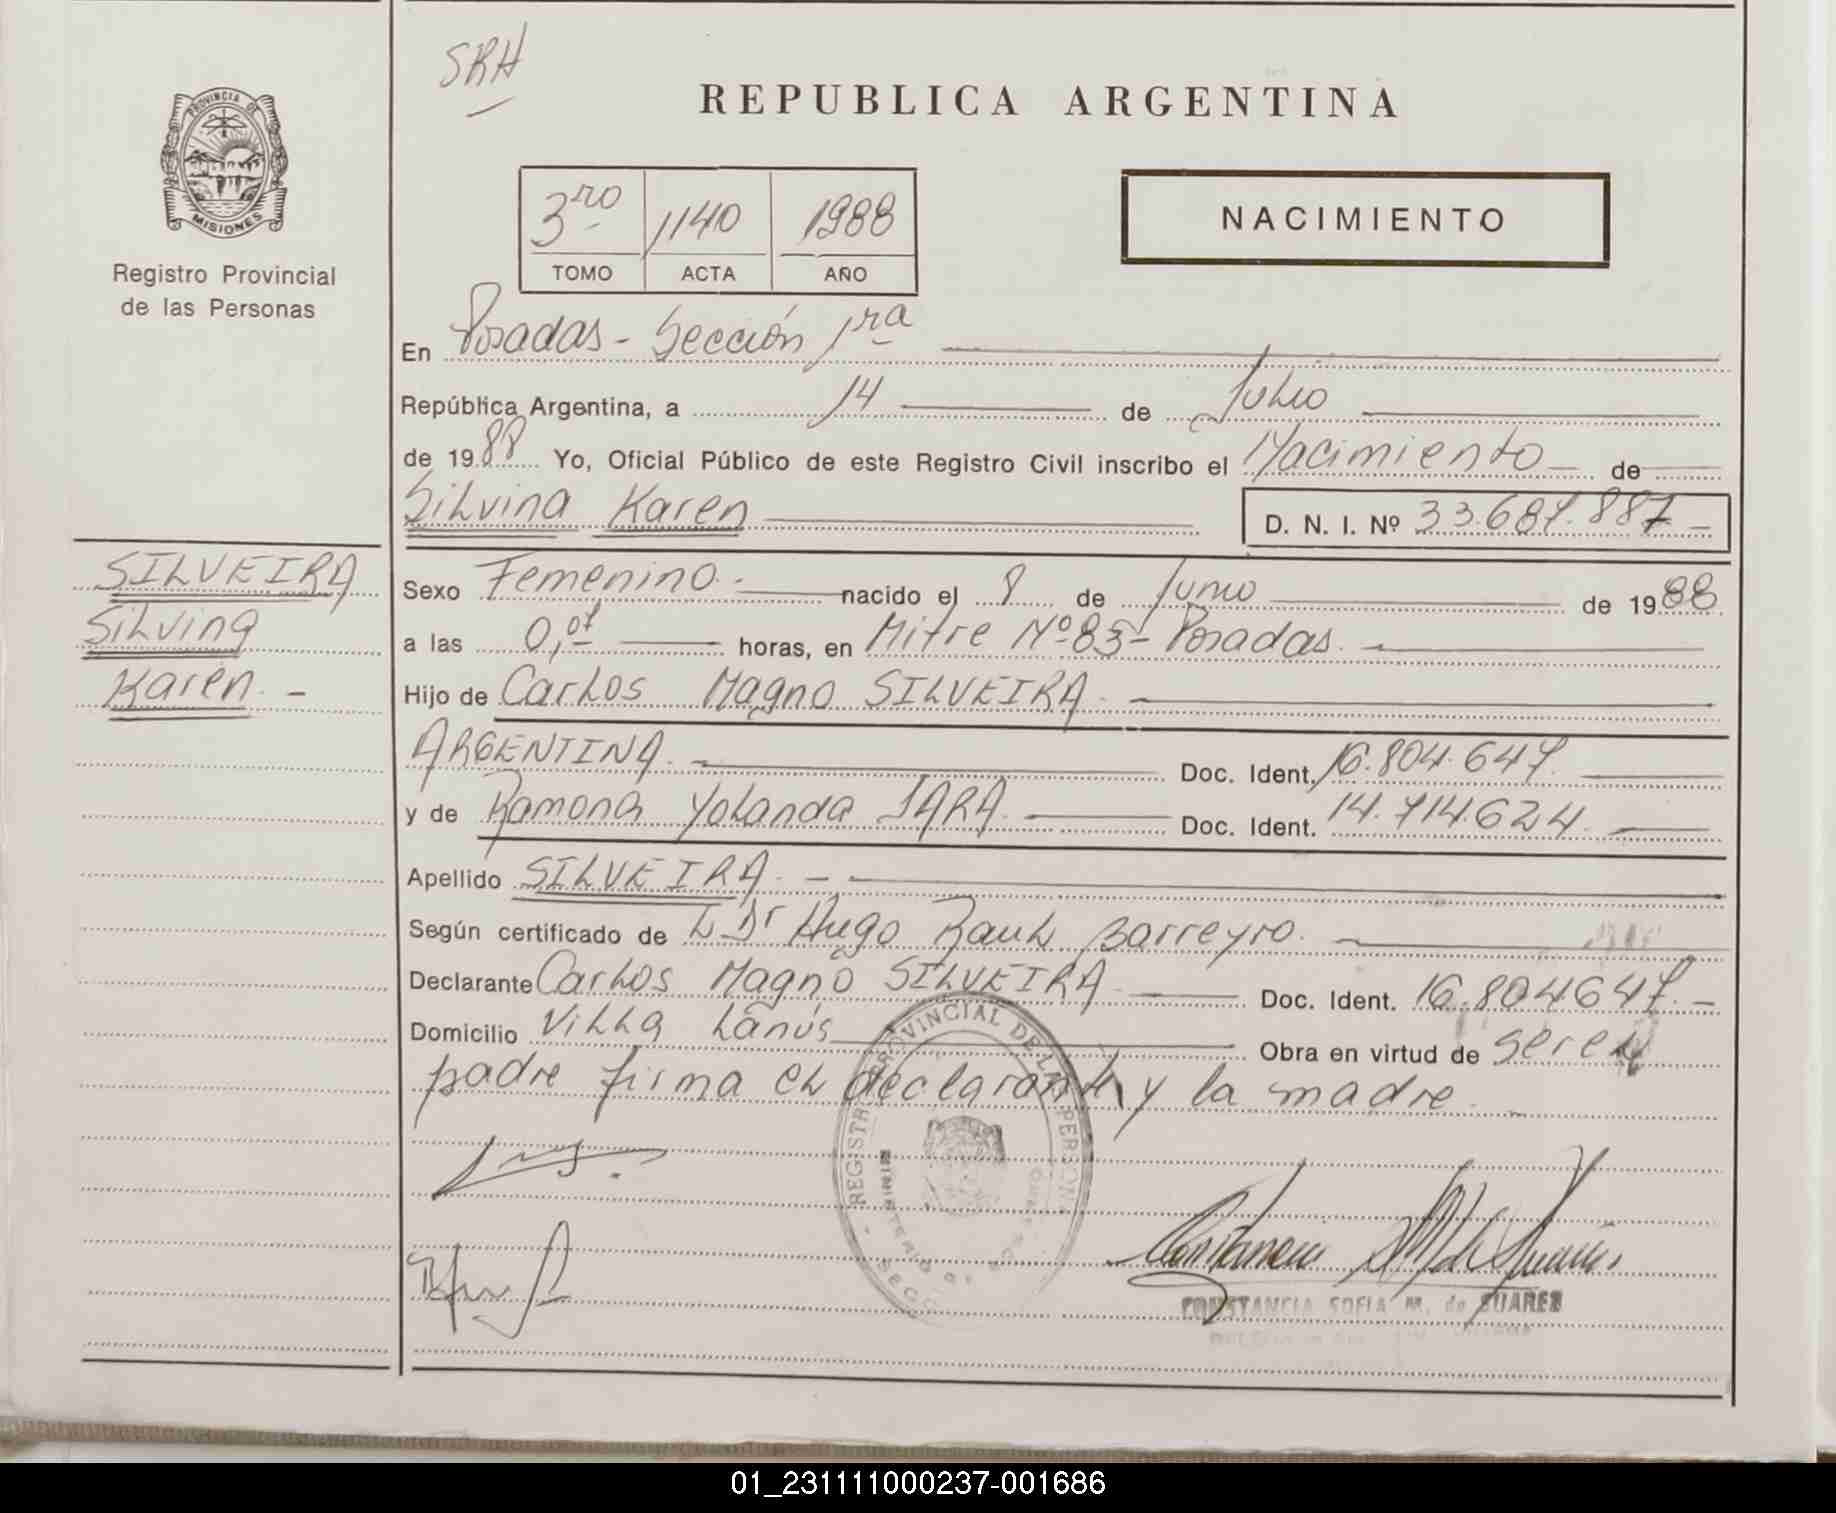 SRH
REPUBLICA ARGENTINA
PROVINCIA DE
MISIONES
Registro Provincial
de las Personas
3ro 1140 1988
TOMO ACTA AÑO
NACIMIENTO
En Posadas - Sección 1ra
República Argentina, a 14 de Julio
de 1988 Yo, Oficial Público de este Registro Civil inscribo el Nacimiento de
Silvina Karen
D. N. I. Nº
SILVEIRA
Silvina
Karen. -
Sexo Femenino.- nacido el 8 de Junio de 1988
a las horas, en Mitre Nº 83 - Posadas.
Hijo de Carlos Magno SILVEIRA.
ARGENTINA. Doc. Ident.
y de Ramona Yolanda JARA. Doc. Ident. 14.714.624.
Apellido SILVEIRA. -
Según certificado de L Dr Hugo Raul Barreyro.
Declarante Carlos Magno SILVEIRA Doc. Ident.
Domicilio Villa Lanús Obra en virtud de ser el
padre firma el declarante y la madre. -
REGISTRO PROVINCIAL DE LAS PERSONAS
MINISTERIO DE
CONSTANCIA SOFIA M. de SUAREZ
01_231111000237-001686